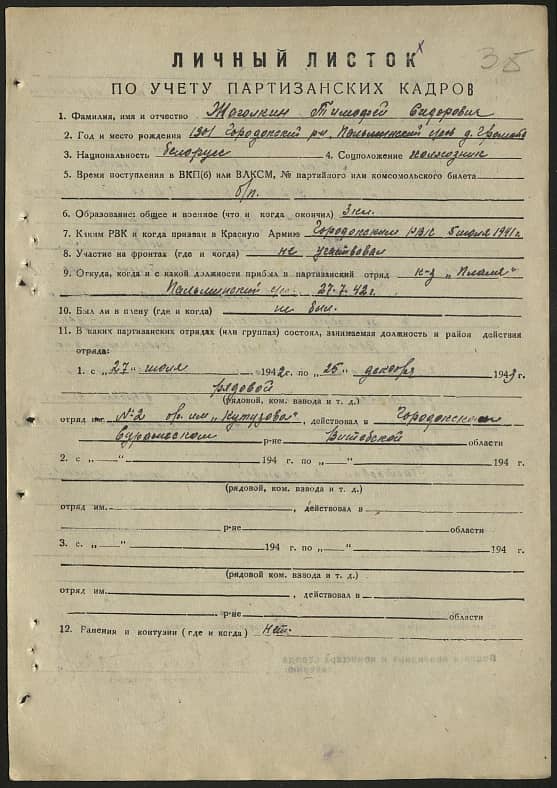 35
ЛИЧНЫЙ ЛИСТОК
ПО УЧЕТУ ПАРТИЗАНСКИХ КАДРОВ
1. Фамилия, имя и отчество Жаголкин Тимофей Сидорович
2. Год и место рождения 1901 Городокский р-н, Пальминский с/сов д.
3. Национальность белорус 4. Соцположение колхозник
5. Время поступления в ВКП(б) или ВЛКСМ, № партийного или комсомольского билета
б/п.
6. Образование: общее и военное (что и когда окончил) 3 кл.
7. Каким РВК и когда призван в Красную Армию Городокским РВК 5 июля 1941 г.
8. Участие на фронтах (где и когда) не участвовал
9. Откуда, когда и с какой должности прибыл в партизанский отряд к-з „Пламя“
Пальминский 27.7.42 г.
10. Был ли в плену (где и когда) не был.
11. В каких партизанских отрядах (или группах) состоял, занимаемая должность и район действия
отряда:
1. с „27“ июля 1942 г. по „25“ декабря 1943 г.
рядовой
(рядовой, ком. взвода и т. д.)
отряд им. №2 бр. им „Кутузова“, действовал в Городокском
Суражском р-не Витебской области
2. с „ “ 194 г. по „ “ 194 г.
(рядовой, ком. взвода и т. д.)
отряд им. , действовал в
р-не области
3. с „ “ 194 г. по „ “ 194 г.
(рядовой, ком. взвода и т. д.)
отряд им. , действовал в
р-не области
12. Ранения и контузии (где и когда) нет.